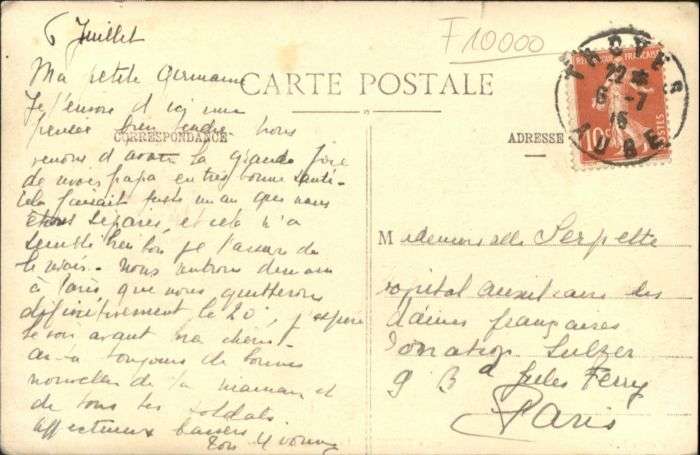 6 Juillet
F10000
CARTE POSTALE
CORRESPONDANCE
ADRESSE
TROYES
22
6-7
15
AUBE
10c
POSTES
Ma petite Germaine
Je t'envoie d'ici une
pensée bien tendre. Nous
venons d'avoir la grande joie
de revoir papa en très bonne santé -
cela faisait juste un an que nous
étions séparés, et cela n'a
semblé bien bon je t'assure de
le revoir - Nous rentrons demain
à Paris que nous quitterons
définitivement le 20, j'espère
te voir avant ma chérie -
as-tu toujours de bonnes
nouvelles de ta maman et
de tous tes soldats
affectueux baisers
ton Yvonne
Mademoiselle Serpette
hopital auxiliaire des
dames françaises
donation Sulzer
9 Bd Jules Ferry
Paris